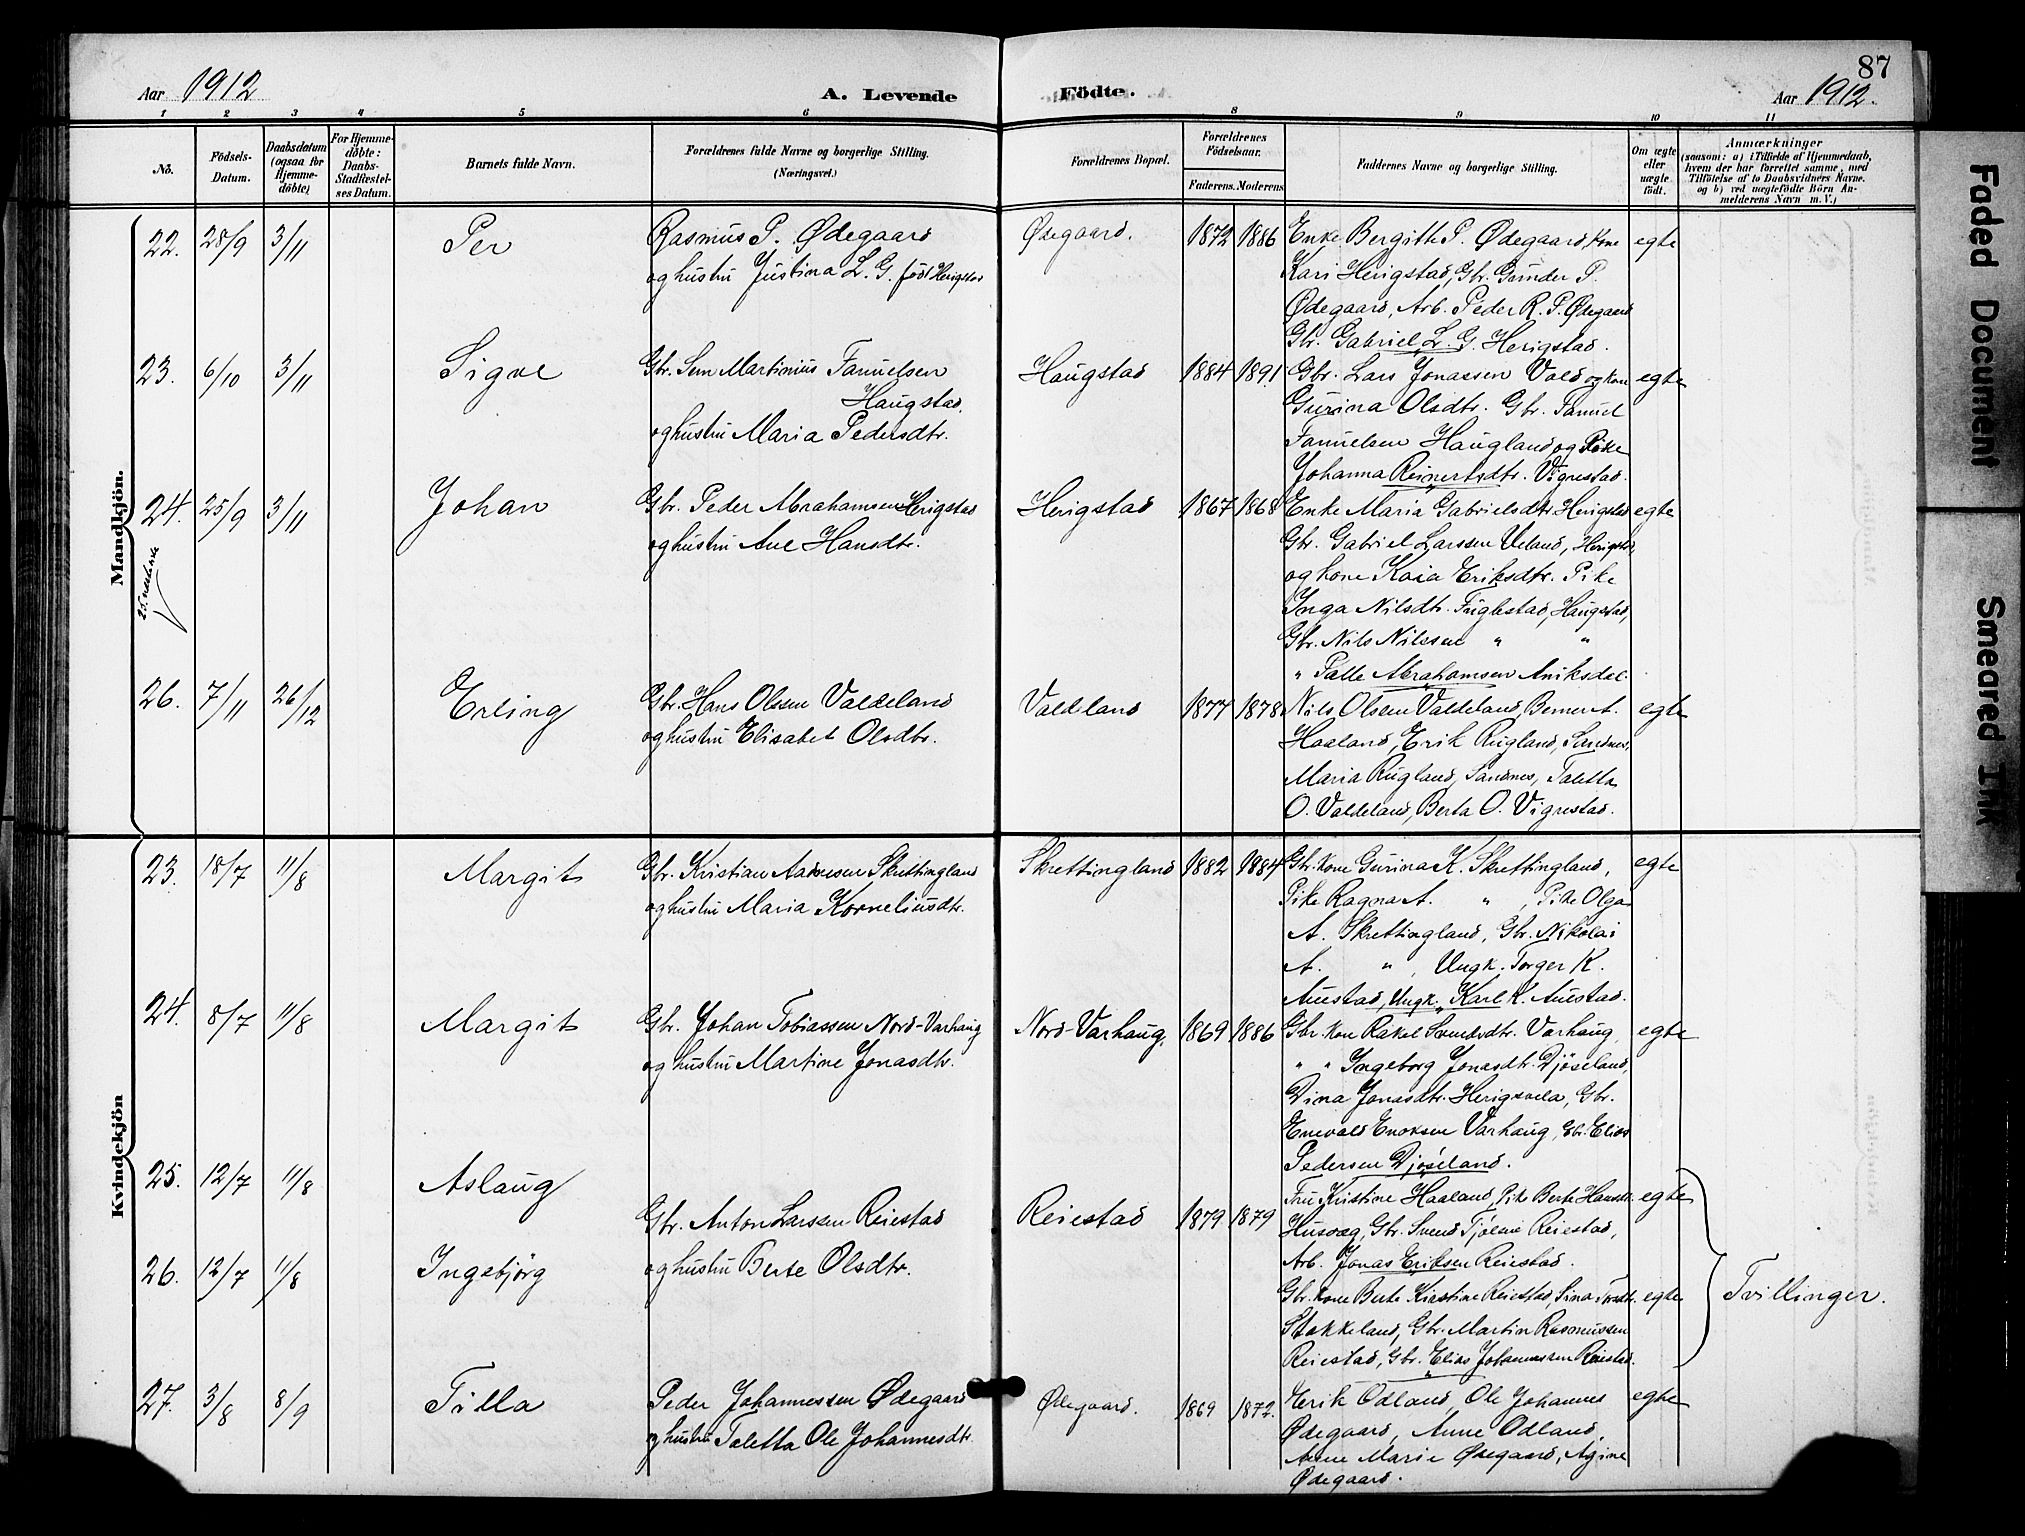 87
Aar 1912
A. Levende Födte.
Aar 1912.
1 2 3 4 5 6 8 9 10 11
No.
Födsels-Datum.
Daabsdatum (ogsaa for Hjemmedöbte)
For Hjemmedöbte: Daabs-Stadfæstelses Datum.
Barnets fulde Navn.
Forældrenes fulde Navne og borgerlige Stilling.
(Næringsvei.)
Forældrenes Bopæl.
Forældrenes Födselsaar.
Faderens. Moderens
Faddernes Navne og borgerlige Stilling.
Om ægte eller uægte födt.
Anmærkninger
(saasom: a) i Tilfælde af Hjemmedaab,
hvem der har forrettet samme, med
Tilföielse af to Daabsvidners Navne.
og b) ved uægtefödte Börn Anmelderens Navn m. V.)
Mandkjön.
22. 28/9 3/11 Per
Rasmus P. Ødegaard
og hustru Justina L. G. född Herigstad
Ødegaard. 1872 1886
Enke Bergitte P. Ødegaard, kone
Kari Herigstad, Gbr. Gunder P.
Ødegaard, Arb. Peder R. P. Ødegaard
Gbr. Gabriel L. G. Herigstad.
egte
23. 6/10 3/11 Sigve
Gbr. Sem Martinius Tanuelsen
Haugstad.
og hustru Maria Pedersdtr.
Haugstad 1884 1891
Gbr. Lars Jonassen Vold og kone
Gurina Olsdtr. Gbr. Fanuel
Fanuelsen Haugland og Pike
Johanna Reinertsdtr. Vigrestad.
egte
24. 25/9 3/11 Johan
Gbr. Peder Abrahamsen Herigstad
og hustru Ane Hansdtr.
Herigstad 1867 1868
Enke Maria Gabrielsdtr. Herigstad
Gbr. Gabriel Larssen Ueland, Herigstad,
og kone Kaia Eriksdtr. Pike
Inga Nilsdtr. Fuglestad, Haugstad,
Gbr. Nils Nilssen " "
" Palle Abrahamsen Aniksdal.
egte
25.
26. 7/11 26/12 Erling
Gbr. Hans Olssen Valdeland
og hustru Elisabet Olsdtr.
Valdeland 1877 1878
Nils Olsen Valdeland, Berner A.
Haaland, Erik Rugland, Sandnes,
Maria Rugland, Sandnes, Taletta
O. Valdeland, Berta O. Vigrestad.
egte
Kvindekjön
23. 18/7 11/8 Margit
Gbr. Kristian Aanensen Skrettingland
og hustru Maria Korneliusdtr.
Skrettingland 1882 1884
Gbr. kone Gurina K. Skrettingland,
Pike Ragna A. " , Pike Olga
A. Skrettingland, Gbr. Nikolai
A. " , Ungk. Torger K.
Auestad, Ungk. Karl K. Auestad.
egte
24. 8/7 11/8 Margit
Gbr. Johan Tobiassen Nord-Varhaug
og hustru Martine Jonasdtr.
Nord-Varhaug. 1869 1886
Gbr. kone Rakel Samuelsdtr. Varhaug,
" " Ingeborg Jonasdtr. Djöseland,
Dina Jonasdtr. Herigsvela, Gbr.
Enevald Enoksen Varhaug, Gbr. Elias
Pedersen Djöseland.
egte
25. 12/7 11/8 Aslaug
Gbr. Anton Larssen Reiestad
Reiestad 1879 1879
Fru Kristine Haaland, Pike Berte Hansdtr.
Husvæg, Gbr. Svend Tjölsen Reiestad,
Arb. Jonas Eriksen Reiestad.
egte
26. 12/7 11/8 Ingebjörg
og hustru Berte Olsdtr.
Gbr. kone Berte Kirstine Reiestad, Sina Tordtr.
Stokkeland, Gbr. Martin Rasmussen
Reiestad, Gbr. Elias Johannessen Reiestad.
egte
Tvillinger.
27. 3/8 8/9 Tilla
Peder Johannessen Ødegaard
og hustru Taletta Ole Johannesdtr.
Ødegaard. 1869 1872.
Erik Odland, Ole Johannes
Ødegaard, Anne Odland,
Anne Marie Ødegaard, Agine
Ødegaard.
egte
Faded Document
Smeared Ink